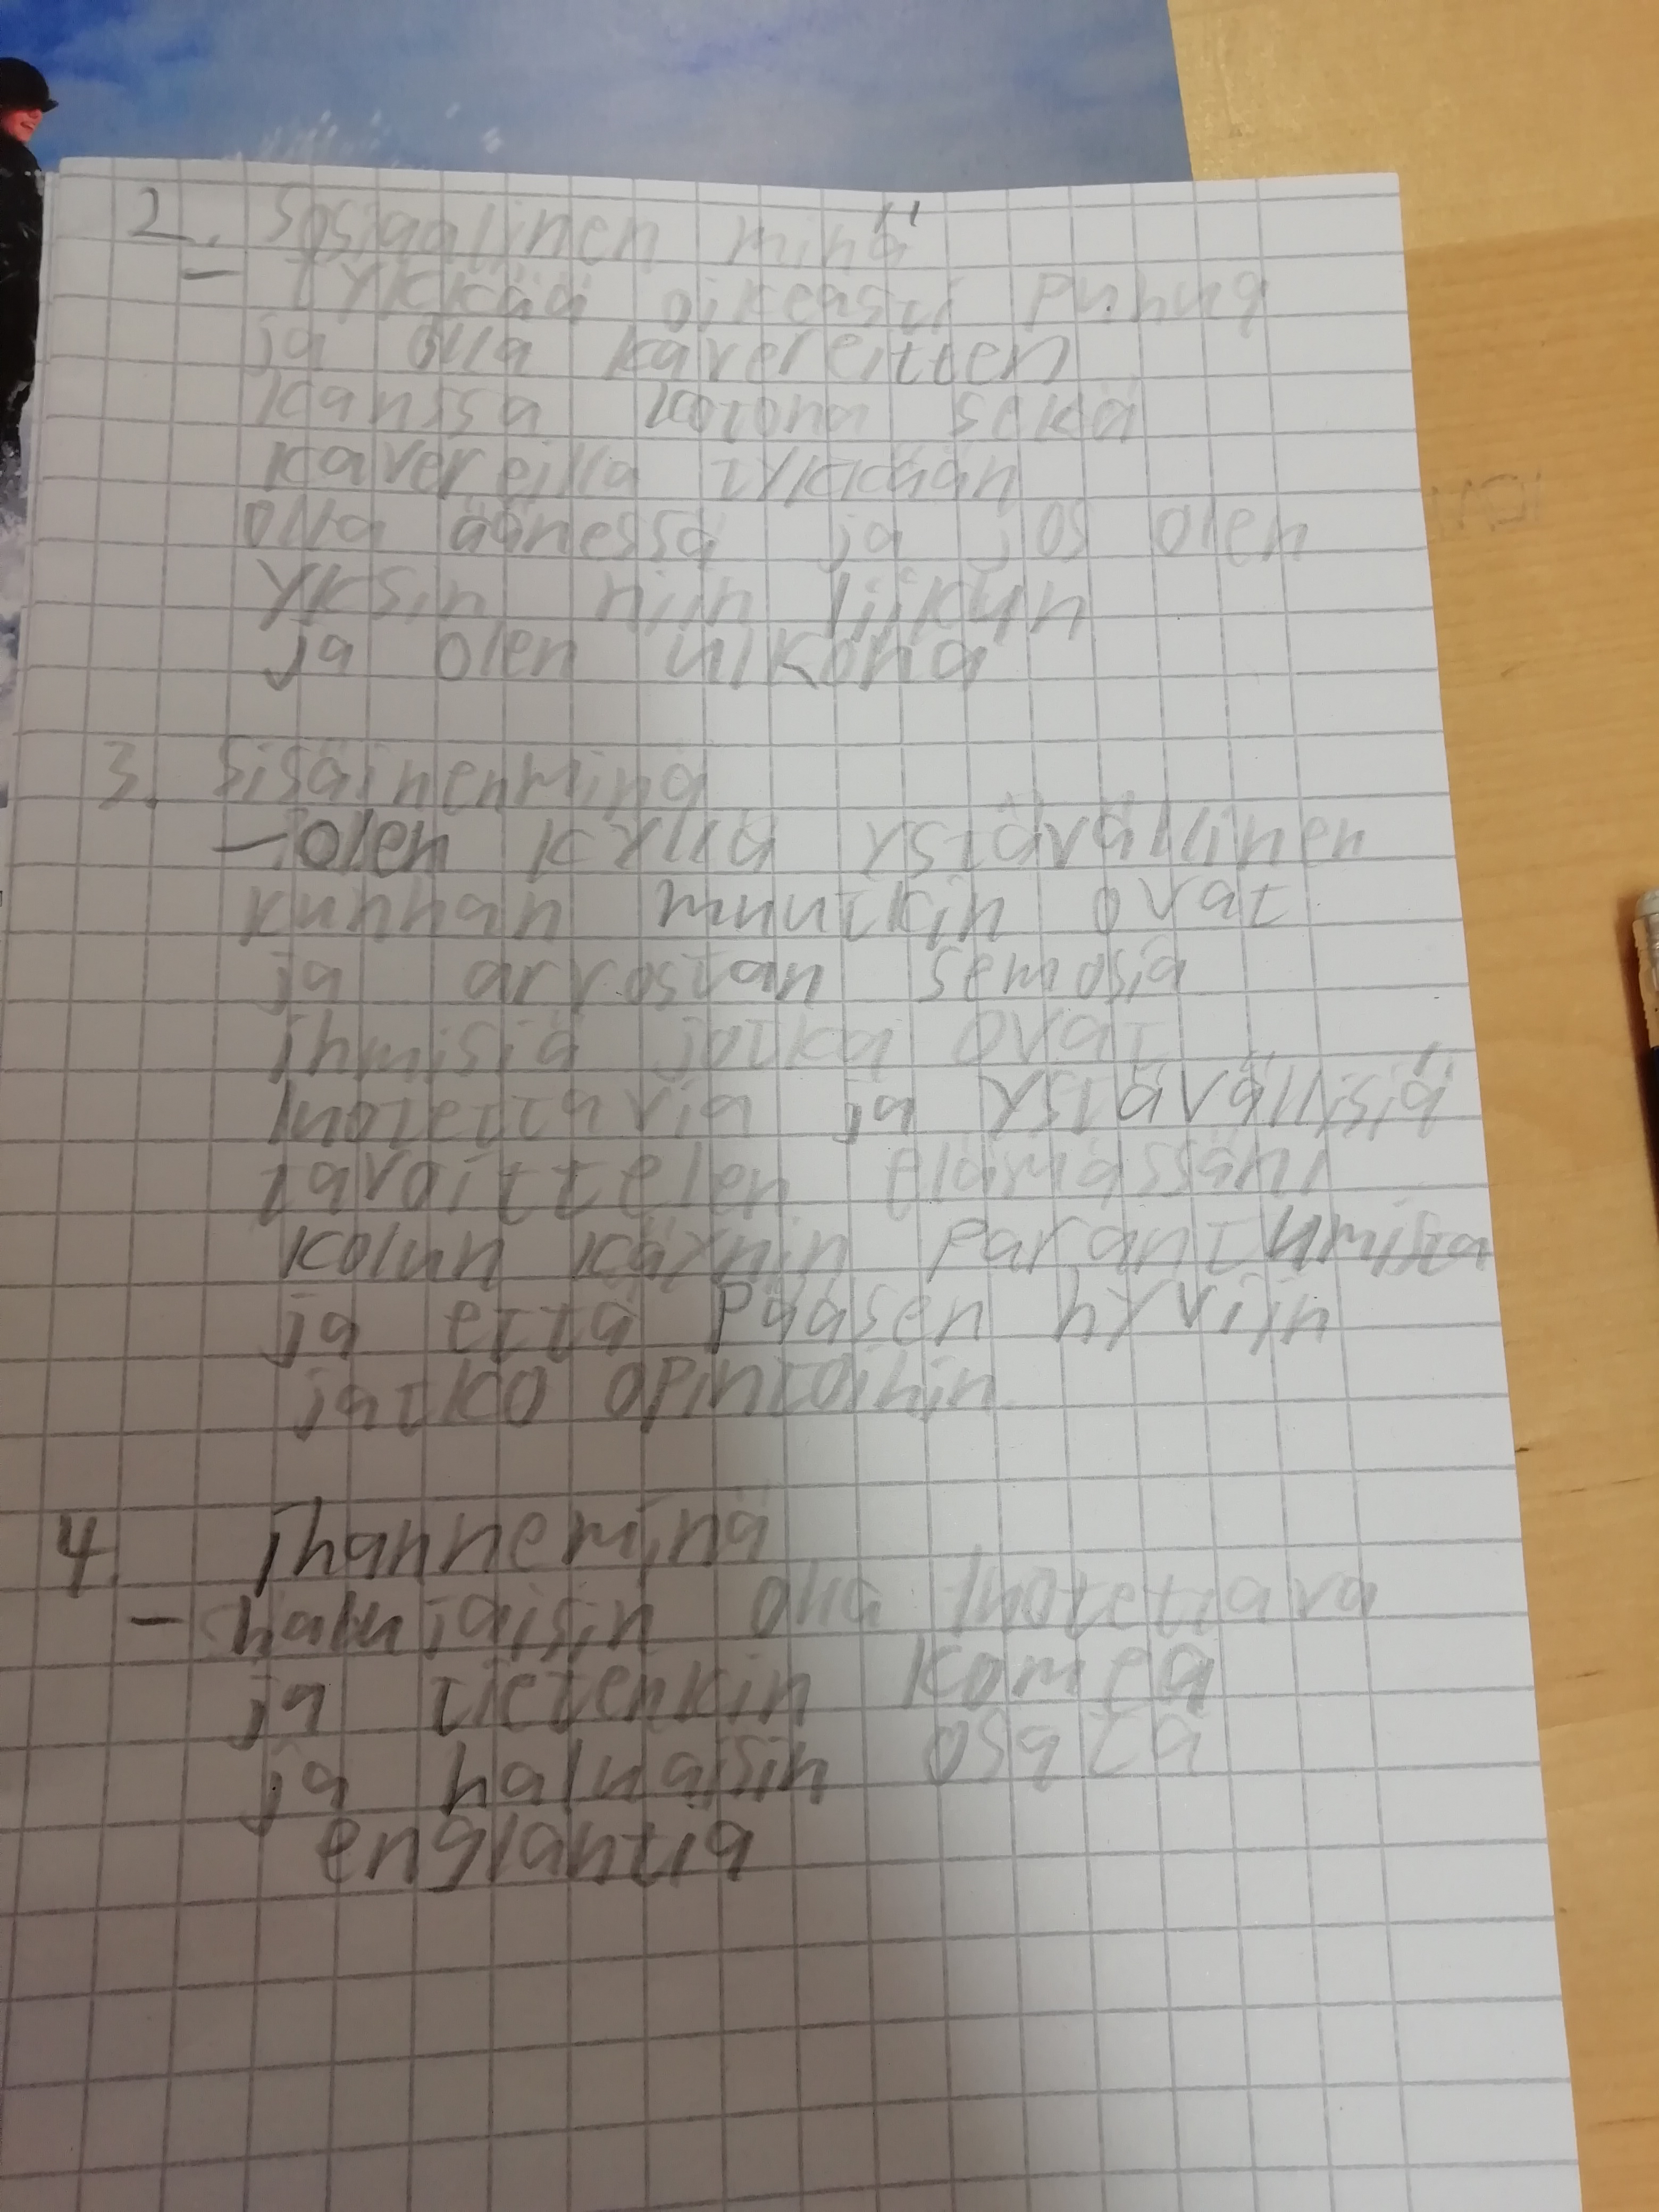 2. Sosiaalinen minä
- Tykkää oikeasti puhua
ja olla kavereitten
kanssa kotona sekä
kavereilla tykkään
olla äänessä ja jos olen
yksin niin liikun
ja olen ulkona
3. Sisäinenminä
- olen kyllä ystävällinen
kunhan muutkin ovat
ja arvostan semosia
ihmisiä jotka ovat
luotettavia ja ystävällisiä
tavoittelen elämässäni
kolun käynin parantumista
ja että pääsen hyviin
jatko opintoihin
4. ihanneminä
- halujaisin olla luotettava
ja tietenkin komea
ja haluaisin osata
englantia